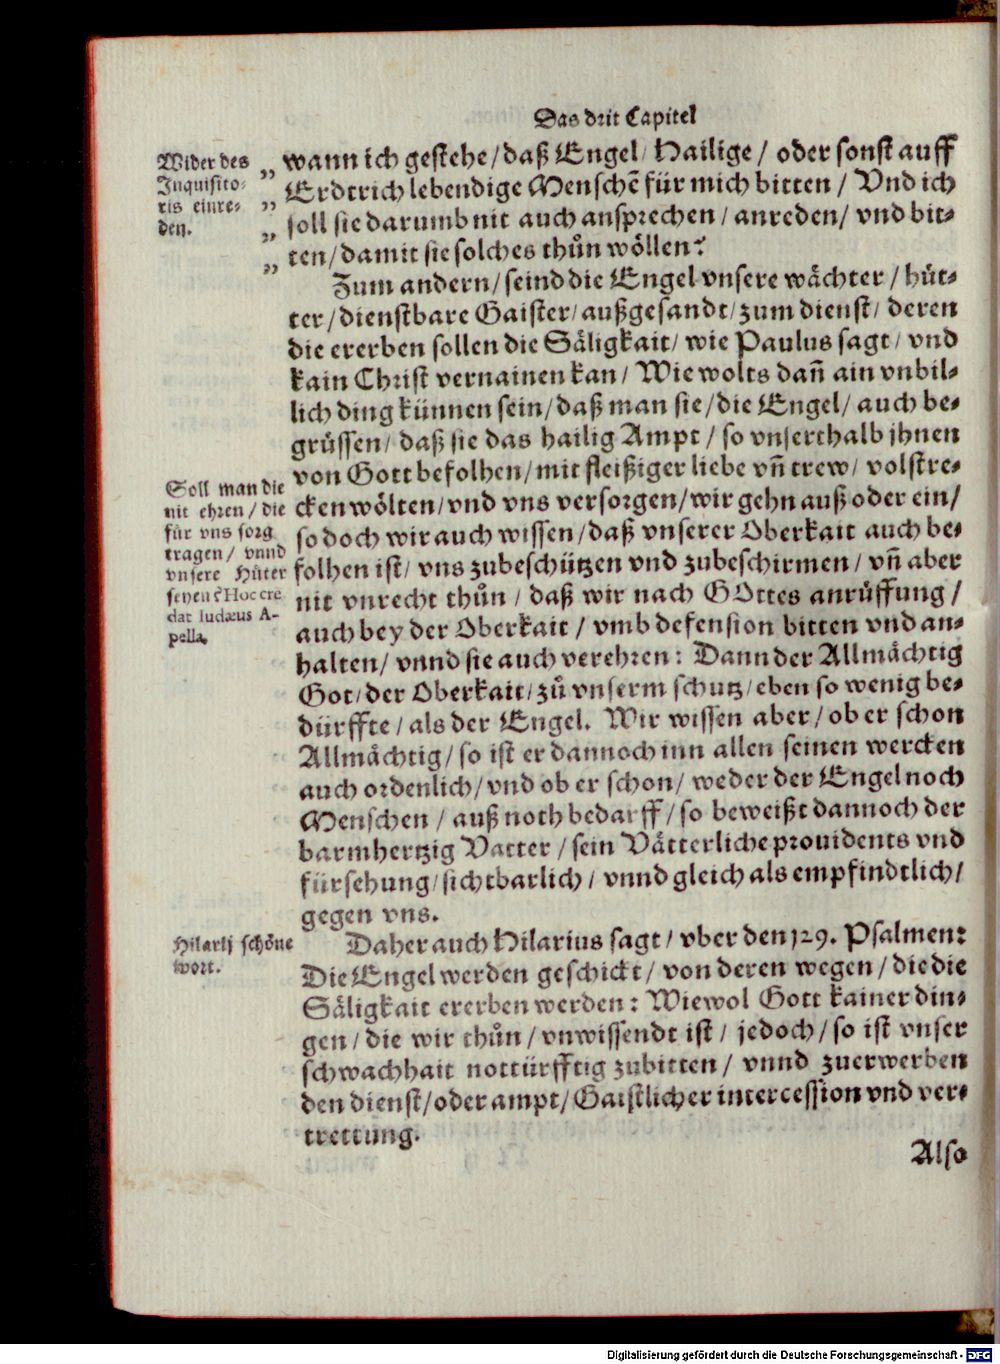 Das drit Capitel
Wider des
Inquisito-
ris einre-
den.
„ wann ich gestehe/ daß Engel/ Hailige/ oder sonst auff
„ Erdtrich lebendige Menschē für mich bitten/ Vnd ich
„ soll sie darumb nit auch ansprechen/ anreden/ vnd bit-
„ ten/ damit sie solches thůn wöllen?
Zum andern/ seind die Engel vnsere wächter/ hüt-
ter/ dienstbare Gaister/ außgesandt/ zum dienst/ deren
die ererben sollen die Säligkait/ wie Paulus sagt/ vnd
kain Christ vernainen kan/ Wie wolts dañ ain vnbil-
lich ding künnen sein/ daß man sie/ die Engel/ auch be-
grüssen/ daß sie das hailig Ampt/ so vnserthalb jhnen
von Gott befolhen/ mit fleißiger liebe vñ trew/ volstre-
cken wölten/ vnd vns versorgen/ wir gehn auß oder ein/
so doch wir auch wissen/ daß vnserer Oberkait auch be-
folhen ist/ vns zubeschützen vnd zubeschirmen/ vñ aber
nit vnrecht thůn/ daß wir nach GOttes anrůffung/
auch bey der Oberkait/ vmb defension bitten vnd an-
halten/ vnnd sie auch verehren: Dann der Allmächtig
Got/ der Oberkait/ zů vnserm schutz/ eben so wenig be-
dürffte/ als der Engel. Wir wissen aber/ ob er schon
Allmächtig/ so ist er dannoch inn allen seinen wercken
auch ordenlich/ vnd ob er schon/ weder der Engel noch
Menschen/ auß noth bedarff/ so beweißt dannoch der
barmhertzig Vatter/ sein Vätterliche prouidents vnd
fürsehung/ sichtbarlich/ vnnd gleich als empfindtlich/
gegen vns.
Soll man die
nit ehren/ die
für vns sorg
tragen/ vnnd
vnsere Hüter
seyen? Hoc cre
dat Iudæus A-
pella.
Daher auch Hilarius sagt/ vber den 129. Psalmen:
Die Engel werden geschickt/ von deren wegen/ die die
Säligkait ererben werden: Wiewol Gott kainer din-
gen/ die wir thůn/ vnwissendt ist/ jedoch/ so ist vnser
schwachhait nottürfftig zubitten/ vnnd zuerwerben
den dienst/ oder ampt/ Gaistlicher intercession vnd ver-
trettung.
Hilarij schöne
wort.
Also
Digitalisierung gefördert durch die Deutsche Forschungsgemeinschaft - DFG